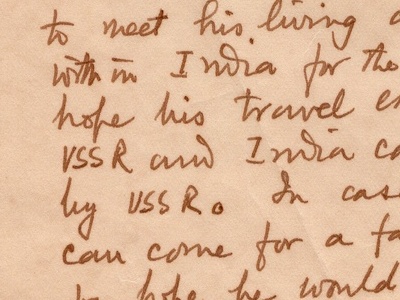 to meet his living
within India for the
hope his travel
USSR and India
by USSR. In case
can come for a
hope he would